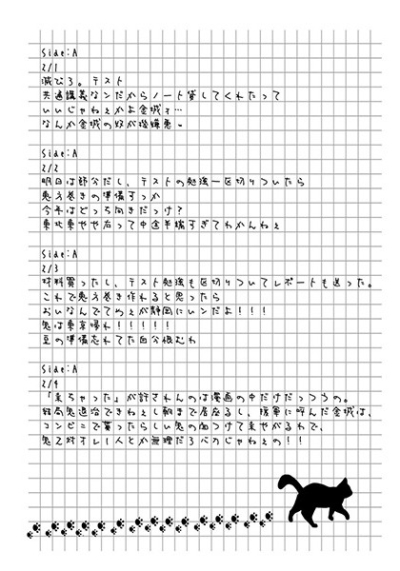 Side:A
2/1
滅びろ。テスト
共通講義なンだからノート貸してくれたって
いいじゃねぇかよ金城ォ…
なんか金城の奴が機嫌悪。
Side:A
2/2
明日は節分だし、テストの勉強一区切りついたら
恵方巻きの準備すっか
今年はどっち向きだっけ?
東北東やや右って中途半端すぎてわかんねぇ
Side:A
2/3
材料買ったし、テスト勉強も区切りついてレポートも送った。
これで恵方巻き作れると思ったら
おいなんでてめぇが静岡にいンだよ!!!
鬼は東京帰れ!!!!!
豆の準備忘れてた自分恨むわ
Side:A
2/4
「来ちゃった」が許されんのは漫画の中だけだっつうの。
結局鬼退治できねぇし朝まで居座るし、援軍に呼んだ金城は、
コンビニで貰ったらしい鬼の面つけて来やがるわで、
鬼2対オレ1人とか無理だろバカじゃねぇの!!